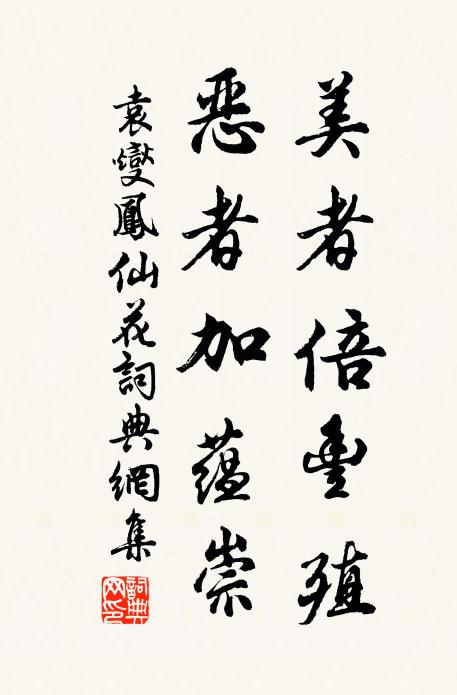 美者倍豐殖
惡者加蘊崇
袁燮鳳仙花詞典網集
詞典網印